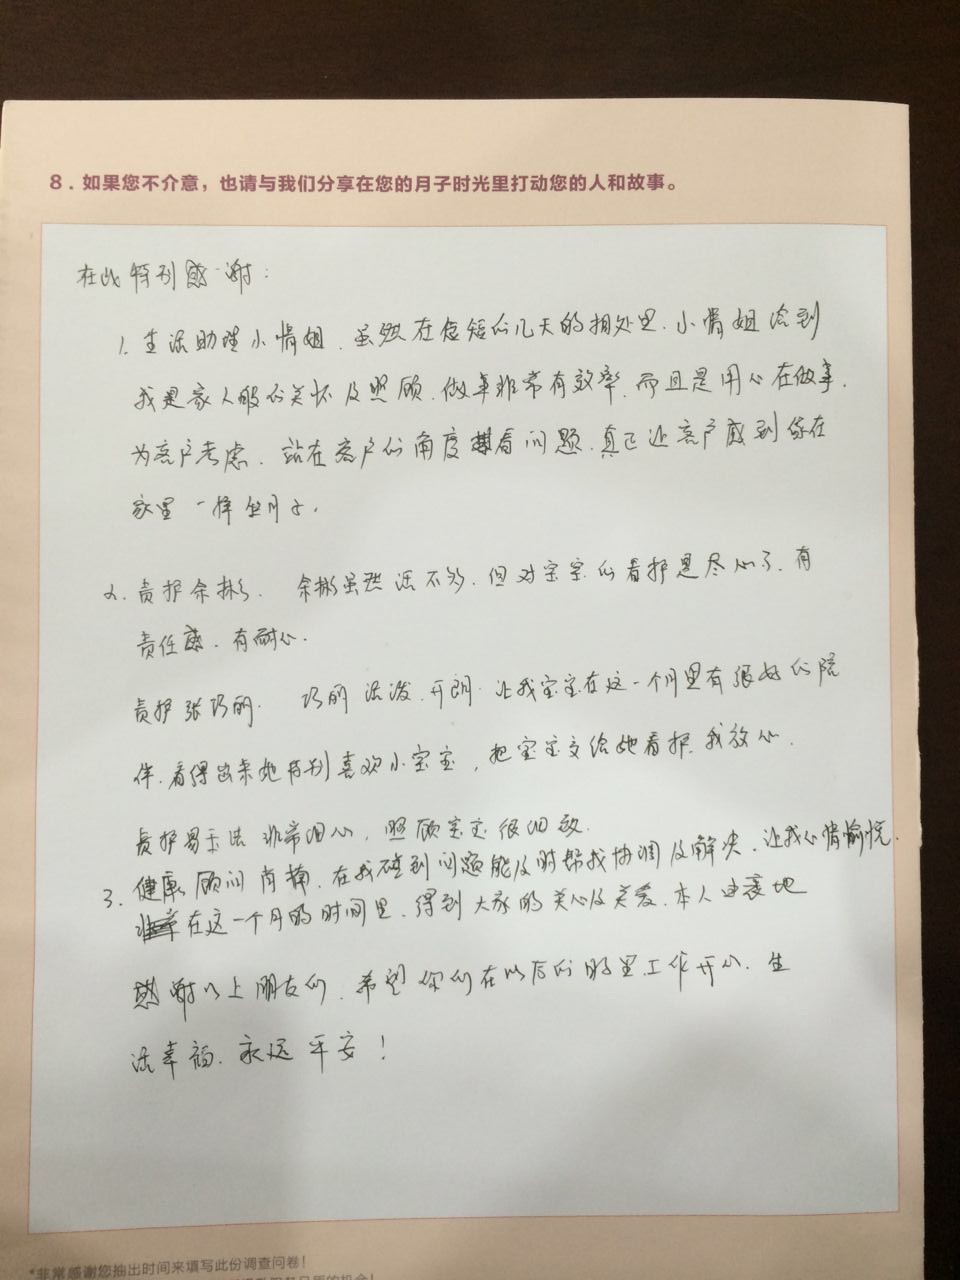 8．如果您不介意，也请与我们分享在您的月子时光里打动您的人和故事。
在此特别感谢：
1. 生活助理小情姐．虽然在短短的几天的相处里．小情姐给到
我是家人般的关怀及照顾．做事非常有效率．而且是用心在做事．
为客户考虑．站在客户的角度看问题．真正让客户感到像在
家里一样坐月子．
2. 责护余彬． 余彬虽然话不多．但对宝宝的看护是尽心了．有
责任感．有耐心．
责护张巧丽． 巧丽活泼．开朗．让我宝宝在这一个月里有很好的陪
伴．看得出来她特别喜欢小宝宝，把宝宝交给她看护．我放心．
责护易 非常细心，照顾宝宝很细致．
3. 健康顾问肖楠．在我碰到问题能及时帮我协调及解决．让我心情愉悦．
在这一个月的时间里．得到大家的关心及关爱．本人由衷地
感谢以上朋友们．希望你们在以后的日子里工作开心．生
活幸福．永远平安！
*非常感谢您抽出时间来填写此份调查问卷！